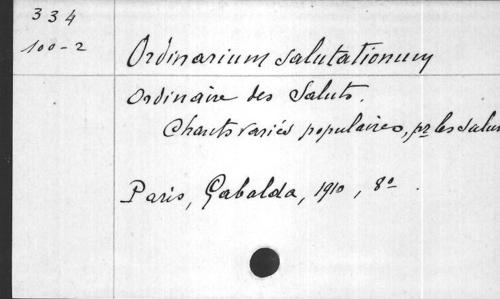 334
100-2
Ordinarium salutationum
Ordinaire des Saluts.
Chants variés populaires, pr les saluts
Paris, Gabalda, 1910, 8º.